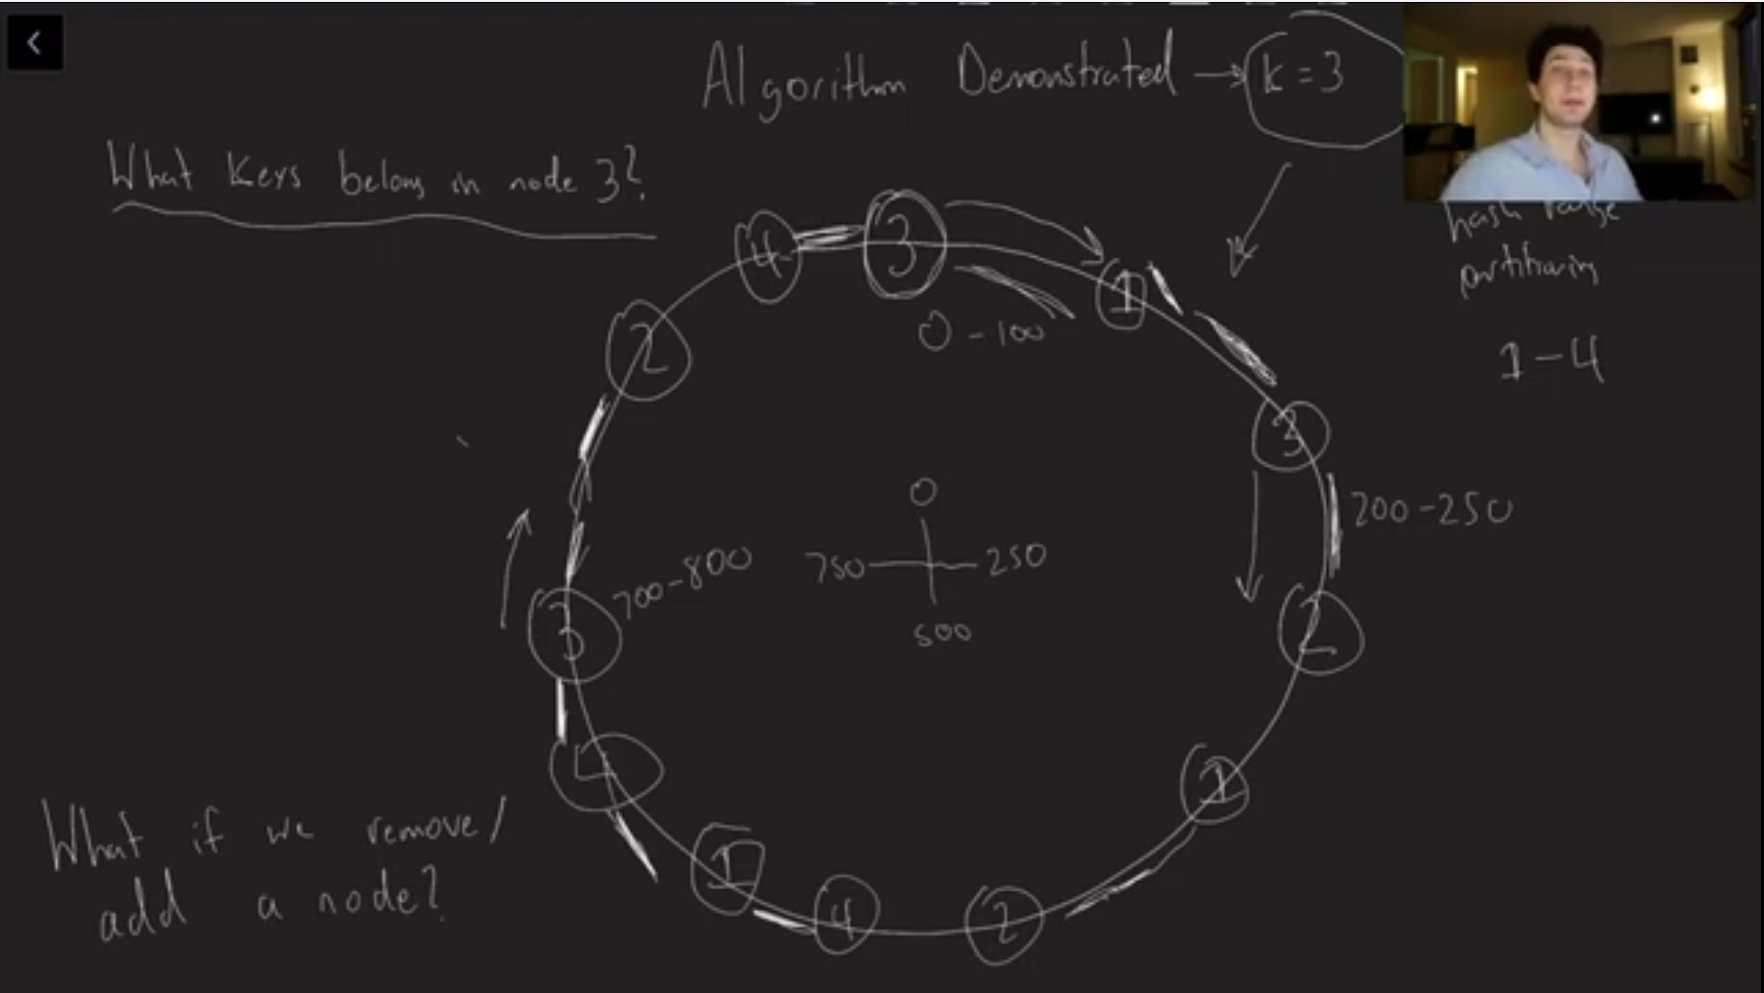 Algorithm Demonstrated → k = 3
What keys belong in node 3?
hash range
partitioning
1-4
4
3
1
0-100
2
3
200-250
0
750
250
500
700-800
3
2
4
1
1
4
2
What if we remove/
add a node?